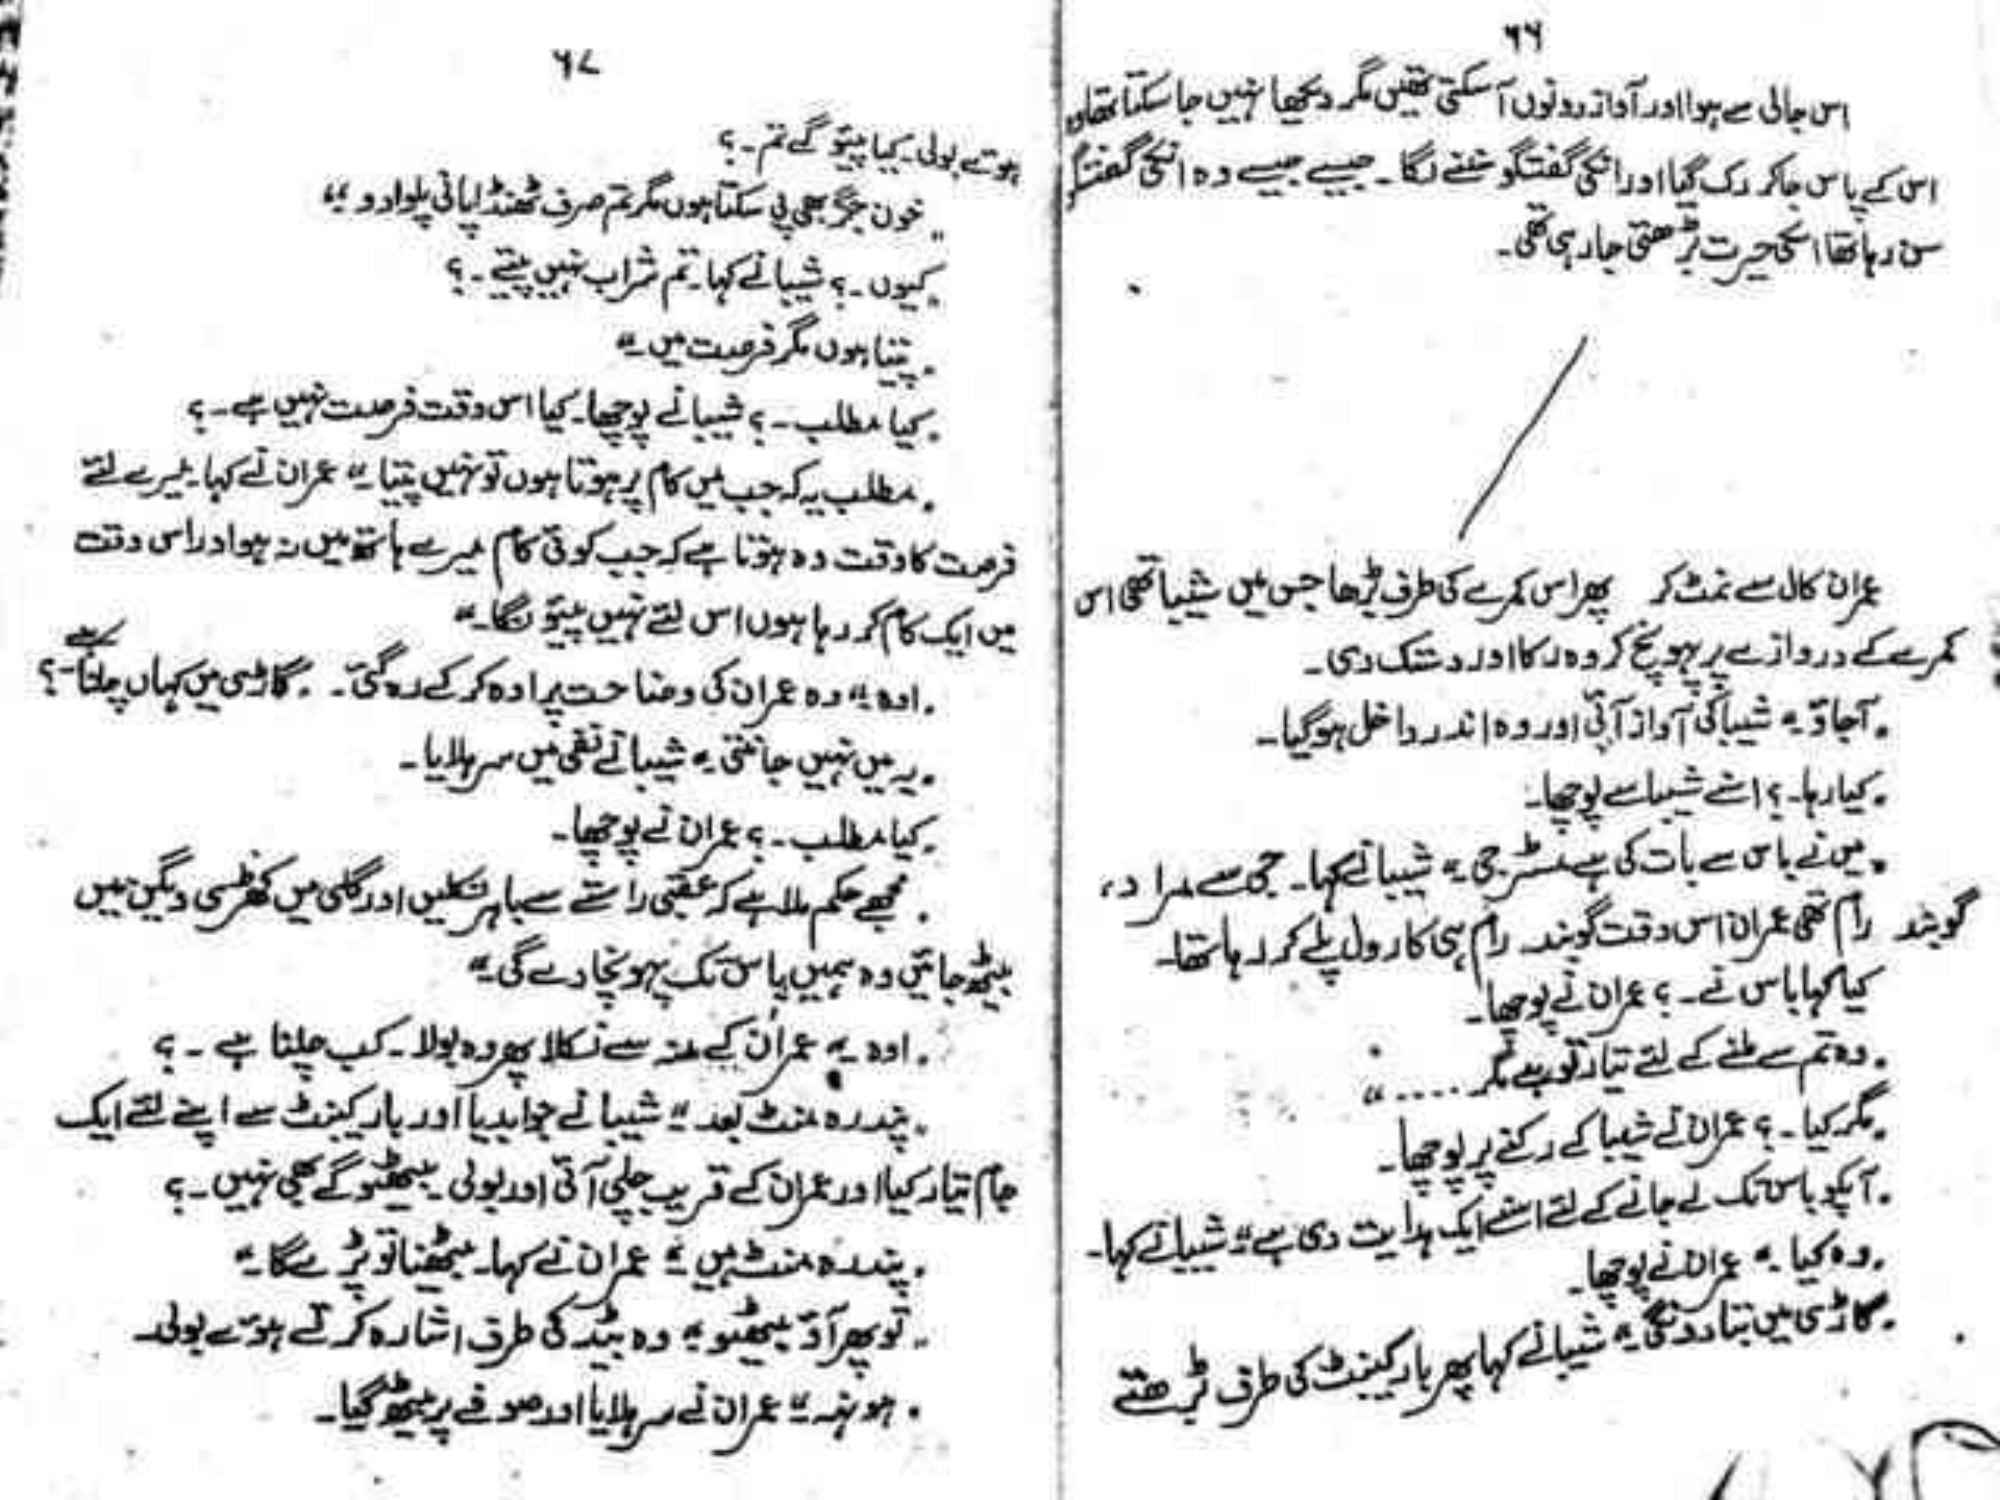 ۶۶
اس جالی سے ہوا اور آواز دونوں آ سکتی تھیں مگر دیکھا نہیں جا سکتا تھا وہ
اس کے پاس جا کر رک گیا اور انکی گفتگو سننے لگا۔ جیسے جیسے وہ انکی گفتگو
سن رہا تھا اسکی حیرت بڑھتی جا رہی تھی۔
عمران کال سے نمٹ کر پھر اس کمرے کی طرف بڑھا جس میں شیبا تھی اس
کمرے کے دروازے پر پہونچ کر وہ رکا اور دستک دی۔
"آجاؤ" شیبا کی آواز آئی اور وہ اندر داخل ہو گیا۔
"کیا رہا۔؟ اسنے شیبا سے پوچھا۔
"میں نے باس سے بات کی ہے مسٹر جی" شیبا نے کہا۔ جی سے مراد،
گوبند رام تھی عمران اس وقت گوبند رام ہی کا رول پلے کر رہا تھا۔
کیا کہا باس نے۔؟ عمران نے پوچھا۔
"وہ تم سے ملنے کے لئے تیار تو ہے مگر ....."
"مگر کیا۔؟ عمران نے شیبا کے رکنے پر پوچھا۔
"آپکو باس تک لے جانے کے لئے اسنے ایک ہدایت دی ہے" شیبا نے کہا۔
"وہ کیا" عمران نے پوچھا۔
"گاڑی میں بتا دونگی" شیبا نے کہا پھر بار کیبنٹ کی طرف بڑھتے
۶۷
ہوتے بولی۔ کیا پیئو گے تم۔؟
"خون جگر بھی پی سکتا ہوں مگر تم صرف ٹھنڈا پانی پلوا دو"
"کیوں۔؟ شیبا نے کہا۔ تم شراب نہیں پیتے۔؟
"پیتا ہوں مگر فرصت میں"
"کیا مطلب۔؟ شیبا نے پوچھا۔ کیا اس وقت فرصت نہیں ہے۔؟
"مطلب یہ کہ جب میں کام پر ہوتا ہوں تو نہیں پیتا" عمران نے کہا۔ میرے لئے
فرصت کا وقت وہ ہوتا ہے کہ جب کوئی کام میرے ہاتھ میں نہ ہو اور اس وقت
میں ایک کام کر رہا ہوں اس لئے نہیں پیئو نگا۔"
"اوہ" وہ عمران کی وضاحت پر اوہ کر کے رہ گئی۔ "گاڑی میں کہاں چلنا ہے۔؟
"یہ میں نہیں جانتی" شیبا نے نفی میں سر ہلایا۔
"کیا مطلب۔؟ عمران نے پوچھا۔
"مجھے حکم ملا ہے کہ عقبی راستے سے باہر نکلیں اور گلی میں کھڑی ویگن میں
بیٹھ جائیں وہ ہمیں باس تک پہونچا دے گی"
"اوہ" عمران کے منہ سے نکلا پھر وہ بولا۔ کب چلنا ہے۔؟
"پندرہ منٹ بعد" شیبا نے جواب دیا اور بار کیبنٹ سے اپنے لئے ایک
جام تیار کیا اور عمران کے قریب چلی آئی اور بولی۔ بیٹھو گے بھی نہیں۔؟
"پندرہ منٹ ہیں" عمران نے کہا۔ بیٹھنا تو پڑے گا"
"تو پھر آؤ بیٹھو" وہ بیڈ کی طرف اشارہ کرتے ہوئے بولی۔
"ہونہہ" عمران نے سر ہلایا اور صوفے پر بیٹھ گیا۔